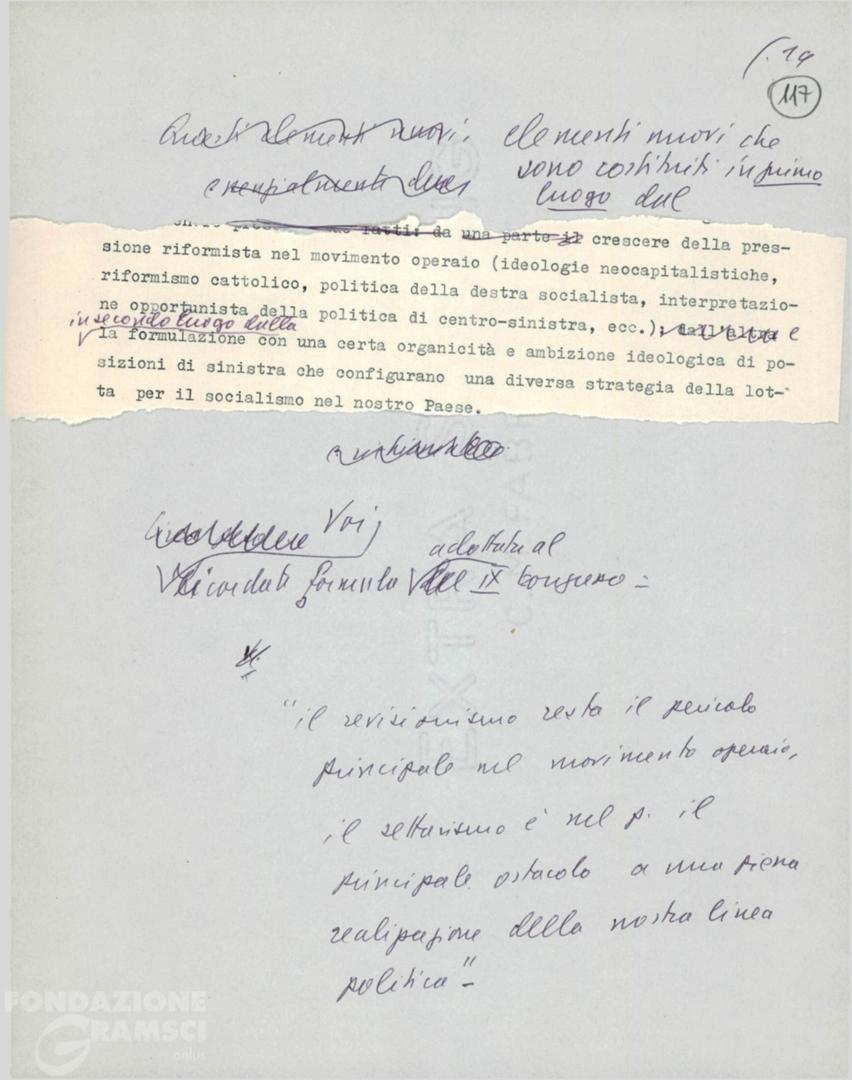 f. 19
117
Questi elementi nuovi. elementi nuovi che
essenzialmente due sono costituiti in primo
luogo dal
fatti: da una parte il crescere della pres-
sione riformista nel movimento operaio (ideologie neocapitalistiche,
riformismo cattolico, politica della destra socialista, interpretazio-
ne opportunista della politica di centro-sinistra, ecc.); dall'altra e
in secondo luogo dalla
la formulazione con una certa organicità e ambizione ideologica di po-
sizioni di sinistra che configurano una diversa strategia della lot-
ta per il socialismo nel nostro Paese.
Voi
adottata al
Ricordate formula del IX Congresso =
"il revisionismo resta il pericolo
principale nel movimento operaio,
il settarismo è nel p. il
principale ostacolo a una piena
realizzazione della nostra linea
politica" -
EXTRA STRONG
FONDAZIONE
GRAMSCI
onlus